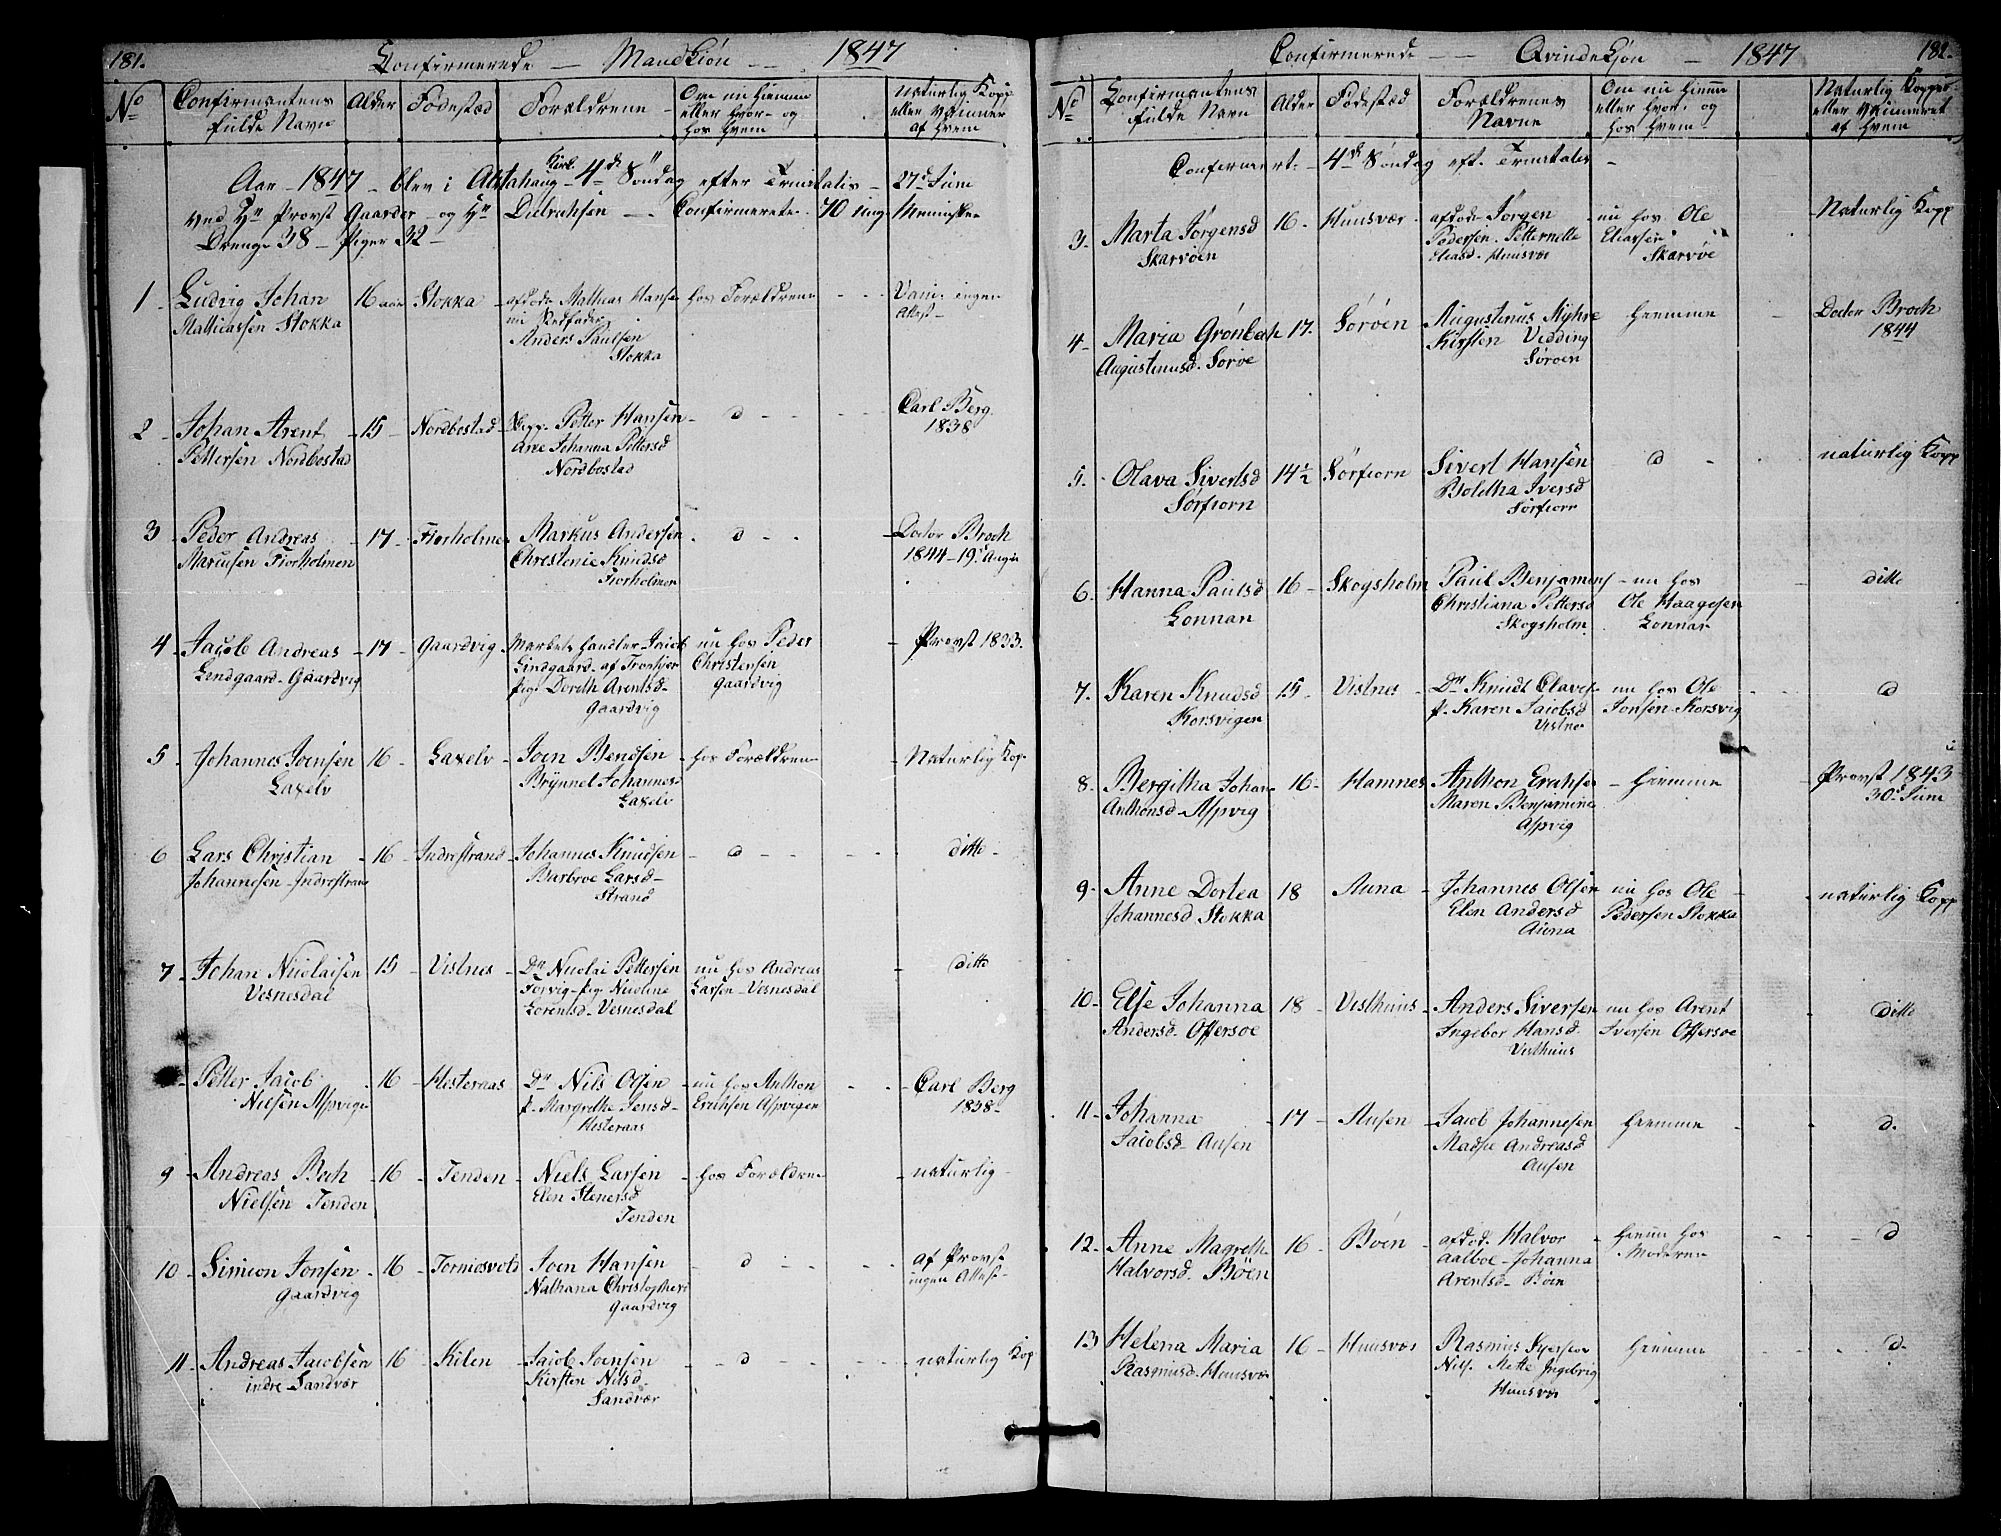 181.
Confirmerede — Mandkiøn — 1847
No
Confirmantens fulde Navn
Alder
Fødestæd
Forældrene
Om nu hiemme eller hvor- og hos hvem
Naturlig Kopp eller Vaccineret af hvem
Aar - 1847 - blev i Alstahaug Kirke - 4de Søndag efter Trinitatis - 27de Juni
ved Hr Provst Gaarder - og Hr Didrichsen — Confirmerete - 70 unge Mennisker
Drenge 38 - Piger 32 -
1 - Ludvig Johan
Mathiassen Stokka
16 aar
Stokka
afdøde Mathias Hansen
nu Stedfader
Anders Paulsen
Stokka
hos Forældrene
Vacc. ingen
Attest -
2 - Johan Arent
Pettersen Nordbostad
15
Nordbostad
Petter Hansen
Ane Johanna Pettersd
Nordbostad
d
Carl Berg
1838
3 Peder Andreas
Marcusen Fiorholmen
17
Fiorholmen
Markus Andersen
Chrestenie Knudsd
Fiorholmen
d
Doctor Broch
1844 - 19. Augu
4 Jacob Andreas
Lindgaard - Gaardvig
17
Gaardvig
Markets handler Jacob
Lindgaard - af Tronhjem
pige Doreth Arentsd -
Gaardvig
nu hos Peder
Christensen
Gaardvig
Provst 1833.
5 Johannes Joensen
Laxelv
16
Laxelv
Joen Bendsen
Brynnel Johannes
Laxelv
hos Forældrene
Naturlig Kop
6 Lars Christian
Johannesen - Indrestrand
16
Indrestrand
Johannes Knudsen
Barbroe Larsd -
Strand
d
ditto
7 - Johan Nicolaisen
Vesnesdal
15
Vistnes
Nicolai Pettersen
Forvig - pige Nicoline
Lorentsd - Vesnesdal
nu hos Andreas
Larsen - Vesnesdal
ditto
Petter Jacob
Nielsen Aspvigen
16
Hesteraas
Nils Olsen
p. Margrethe Jensd -
Hesteraas
nu hos Anthon
Erichsen Aspvigen
Carl Berg
1838 -
9 - Andreas Boch
Nielsen Tenden
16
Tenden
Niels Larsen
Elen Stenersd
Tenden
hos Forældrene
naturlig -
10 - Simeon Jonsen
Gaardvig
16
Joen Hansen
Nathana Christophers
Gaardvig
d
af Provst
ingen Attest -
11 - Andreas Jacobsen
indre - Sandvær
16
Kilen
Jacob Joensen
Kirsten Nilsd -
Sandvær
d
naturlig Kop
182.
Confirmerede — Qvindekiøn — 1847
No
Confirmantens fulde Navn
Alder
Fødestæd
Forældrenes Navne
Om nu hiemme eller hvor- og hos hvem -
Naturlig Kopper eller Vaccineret af hvem
Confirmert - 4de Søndag eft. Trinitatis -
3. Marta Jørgensd
Skarvøen
16
Huusvær
afdøde Jørgen
Pedersen - Petternelle
Eliasd - Huusvær
nu hos Ole
Eliassen
Skarvøe
Naturlig Kopp
4 - Maria Grønbech
Augustinusd. Sørøe
17
Sørøen
Augustinus Myhre
Kirsten Vedding
Sørøen
hiemme
Doctor Broch
1844
5. Olava Sivertsd
Sørfiorn
14 1/2
Sørfiorn
Sivert Hansen
Boletha Iversd
Sørfiorn
d
naturlig Kopp
6. Hanna Paulsd
Lonnan
16
Skogsholm
Paul Benjamins
Christiana Pettersd
Skogsholm
nu hos
Ole Haagesen
Lonnan
ditto
7. Karen Knudsd
Korsvigen
15
Vistnes
Knudt Olavs
p. Karen Jacobsd
Vistnes
nu hos Ole
Jonsen - Korsvig
d
8. Bergitha Johan
Anthonsd - Aspvig
16
Hamnes
Anthon Erichsen
Maren Benjamins
Aspvig
hiemme
Provst 1843
30. Juni
9 - Anne Dortea
Johannesd Stokka
18
Auna
Johannes Olsen
Elen Andersd
Auna
nu hos Ole
Pedersen Stokka
naturlig Kopp
10 - Else Johanna
Andersd - Offersøe
18
Visthuus
Anders Siversen
Ingebor Hansd.
Visthuus
nu hos Arent
Iversen Offersøe
ditto
11 - Johanna
Jacobsd - Ausen
17
Ausen
Jacob Johannesen
Madse Andreasd
Ausen
hiemme
d.
12 - Anne Magreth
Halvorsd - Bøen
16
Bøen
afdød. Halvor
Aalboe - Johanna
Arentsd - Bøen
hiem hos
Moderen
d
13 Helena Maria
Rasmusd - Huusvær
16
Huusvær
Rasmus
Nils. Mette Ingebrig
Huusvær
hiemme
d.